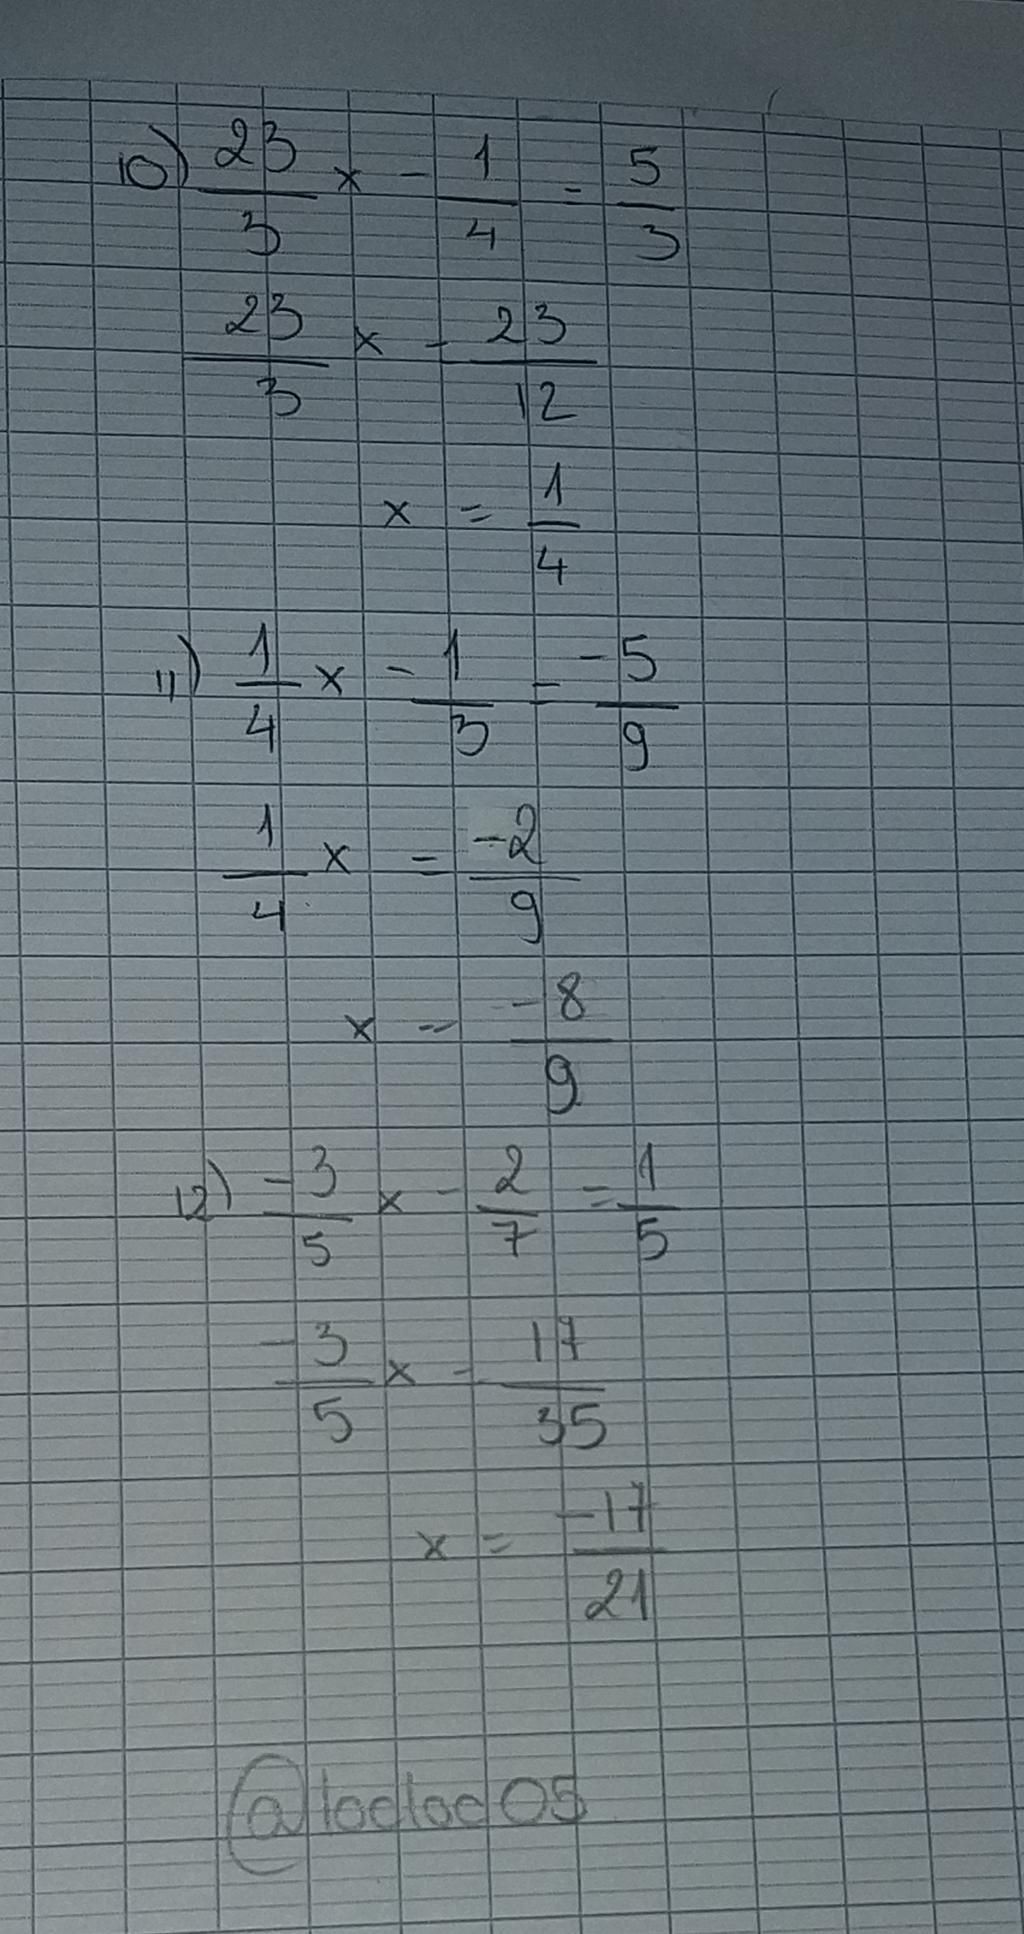 10) 23/3 x - 1/4 = 5/3
23/3 x - 23/12
x = 1/4
11) 1/4 x - 1/3 = -5/9
1/4 x = -2/9
x = -8/9
12) -3/5 x - 2/7 = 1/5
-3/5 x - 17/35
x = -17/21
@loeloe05